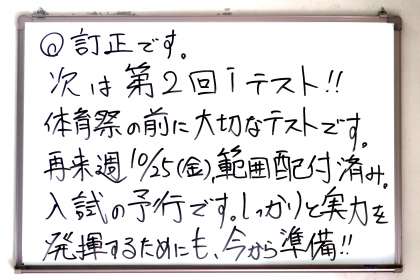 @訂正です。
次は第2回iテスト!!
体育祭の前に大切なテストです。
再来週10/25(金),範囲配付済み。
入試の予行です。しっかりと実力を
発揮するためにも、今から準備!!